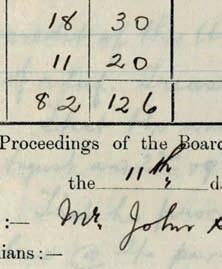 18 30
11 20
82 126
Proceedings of the Board
the 11th d
:— Mr. John
ians :—